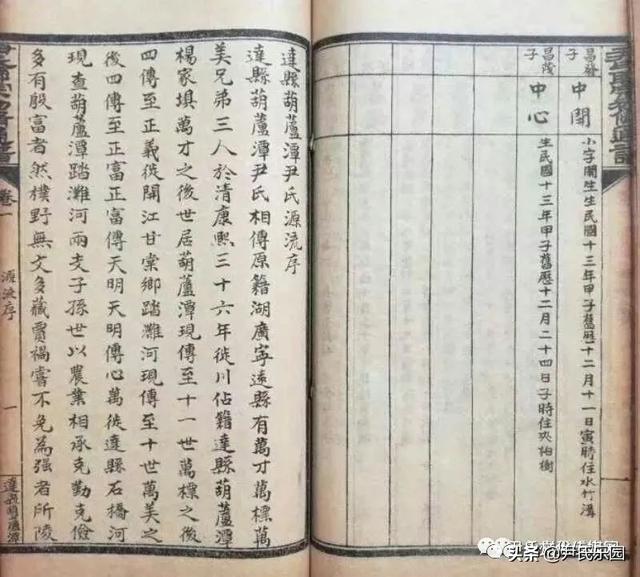 昌發子
中閏
小字閏生生民國十三年甲子舊曆十二月十一日寅時住水竹溝
昌茂子
中心
生民國十三年甲子舊曆十二月二十四日子時住夾柏樹
達縣葫蘆潭尹氏源流序
達縣葫蘆潭尹氏相傳原籍湖廣寧遠縣有萬才萬標萬
美兄弟三人於清康熙三十六年徙川佔籍達縣葫蘆潭
楊家埧萬才之後世居葫蘆潭現傳至十一世萬標之後
四傳至正義徙開江甘棠鄉踏灘河現傳至十世萬美之
後四傳至正富正富傳天明天明傳心萬徙達縣石橋河
現查葫蘆潭踏灘河兩支子孫世以農業相承克勤克儉
多有殷富者然樸野無文多藏賈禍嘗不免為强者所陵
卷一 源流序 一 達縣葫蘆潭
头条 @尹氏乐园